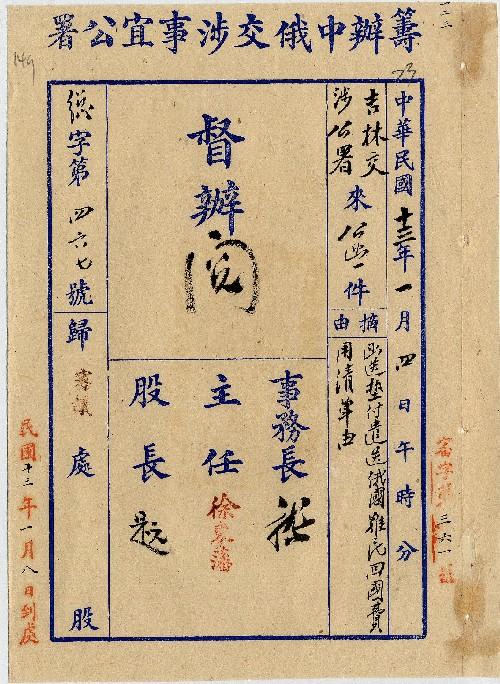 籌辦中俄交涉事宜公署
中華民國十三年一月四日午時分
吉林交
涉公署
來公函一件
摘由
函送墊付遣送俄國難民回國費
用清單由
督辦
閱
事務長
主任 徐東藩
股長
總字第四六七號歸審議處股
審字第三六一號
民國十三年一月八日到處
149